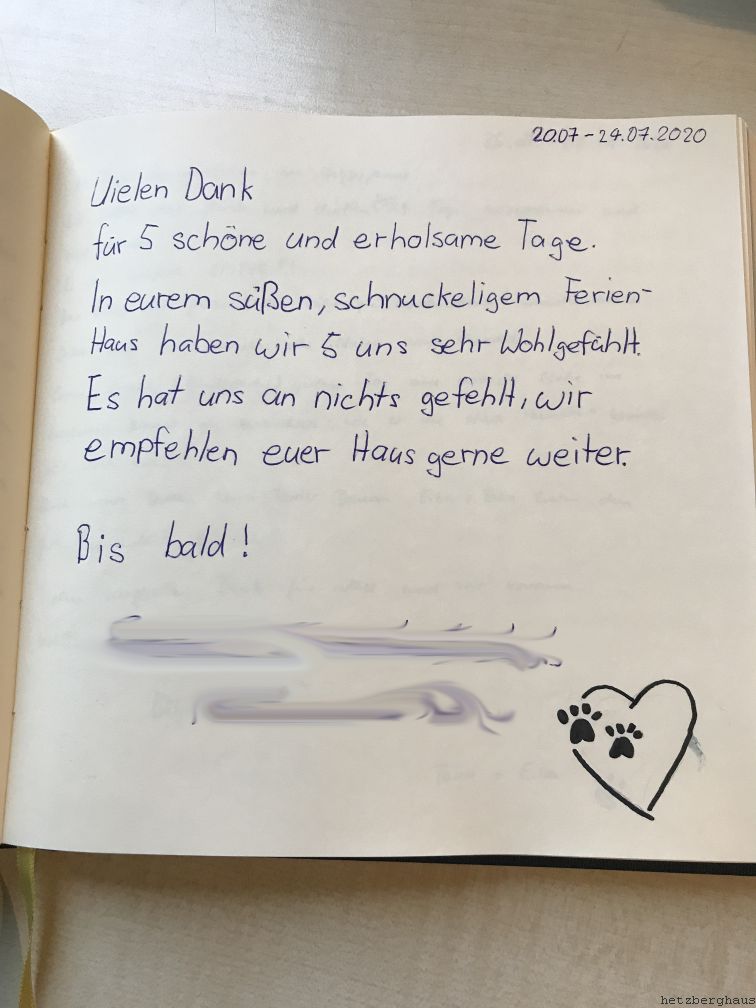 20.07 - 24.07.2020
Vielen Dank
für 5 schöne und erholsame Tage.
In eurem süßen, schnuckeligem Ferien-
Haus haben wir 5 uns sehr Wohlgefühlt.
Es hat uns an nichts gefehlt, wir
empfehlen euer Haus gerne weiter.
Bis bald!
hetzberghaus